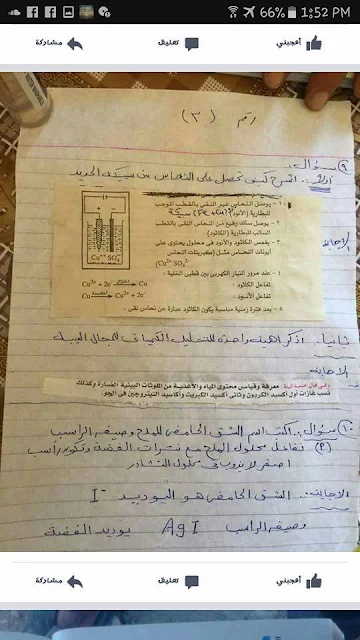 66% 1:52 PM
أعجبني تعليق مشاركة
رقم (٣)
٩) سؤال:
أولاً: اشرح كيف تحصل على النحاس من سبيكة الحديد
الإجابة
١ - يوصل النحاس غير النقى بالقطب الموجب
للبطارية (الأنود) (Fe + Cu) سبيكة
٢ - يوصل سلك رفيع من النحاس النقى بالقطب
السالب للبطارية (الكاثود).
٣ - يغمس الكاثود والأنود فى محلول يحتوى على
أيونات النحاس مثل (كبريتات النحاس
(Cu²⁺ SO₄²⁻
Cu²⁺ SO₄²⁻
٤ - عند مرور التيار الكهربى بين قطبى الخلية :
تفاعل الكاثود : Cu²⁺ + 2e⁻ اختزال Cu
تفاعل الأنود : Cu أكسدة Cu²⁺ + 2e⁻
٥ - بعد فترة زمنية مناسبة يكون الكاثود عبارة عن نحاس نقى .
ثانيا: اذكر أهمية واحدة للتحليل الكيميائى فى مجال البيئة
الإجابة
معرفة وقياس محتوى المياه والأغذية من الملوثات البيئية الضارة وكذلك
نسب غازات أول أكسيد الكربون وثانى أكسيد الكبريت وأكاسيد النيتروجين فى الجو.
١٠) سؤال: اكتب اسم الشق الحامضى للملح وصيغة الراسب
(٢) تفاعل محلول الملح مع نترات الفضة وتكون راسب
أصفر لا يذوب فى محلول النشادر
الإجابة: الشق الحامضى هو اليوديد I⁻
وصيغة الراسب AgI يوديد الفضة
أعجبني تعليق مشاركة